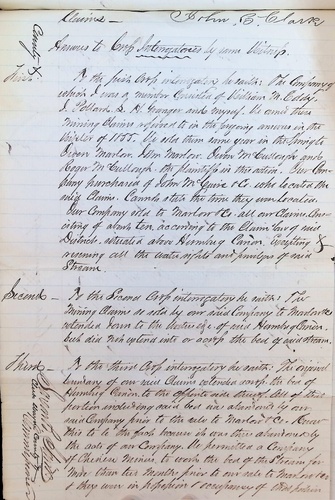 Claims — John C. Clark
County of
Answers to Cross Interrogatories by same Witness.
First. To the first Cross interrogatory he saith: The Company of
which I was a member Consisted of William M. Eddy,
J. Pollard, S. H. Granger and myself. We owned these
mining Claims referred to in the foregoing answers in the
Winter of 1855. We sold them same year in the Spring to
Owen Marlow, John Marlow, Dennis McCullough and
Roger McCullough, the plaintiffs in this action. Our Com-
pany purchased of John McGuire & Co. who located the
said Claims. Cannot state the time they were located.
Our Company sold to Marlow & Co. all our Claims Con-
sisting of about ten, according to the Claim laws of said
District, situated above Humbug Canon. Excepting &
reserving all the water rights and privileges of said
Stream.
Second — To the Second Cross interrogatory he saith: The
Mining Claims as sold by our said Company to Marlow & Co.
extended down to the waters edge of said Humbug Canon,
but did not extend into or across the bed of said stream.
Third — To the third Cross interrogatory he saith: The original
boundary of our said Claims extended across the bed of
Humbug Canon to the opposite side thereof. All of that
portion including said bed was abandoned by our
said Company prior to the sale to Marlow & Co. I know
this to be the fact because it was thus abandoned by
the act of our Company. We permitted a Company
of Chinese Miners to work the bed of the Stream for
more than two Months prior to our sale to Marlow & Co.
& they were in peaceful occupancy of this portion